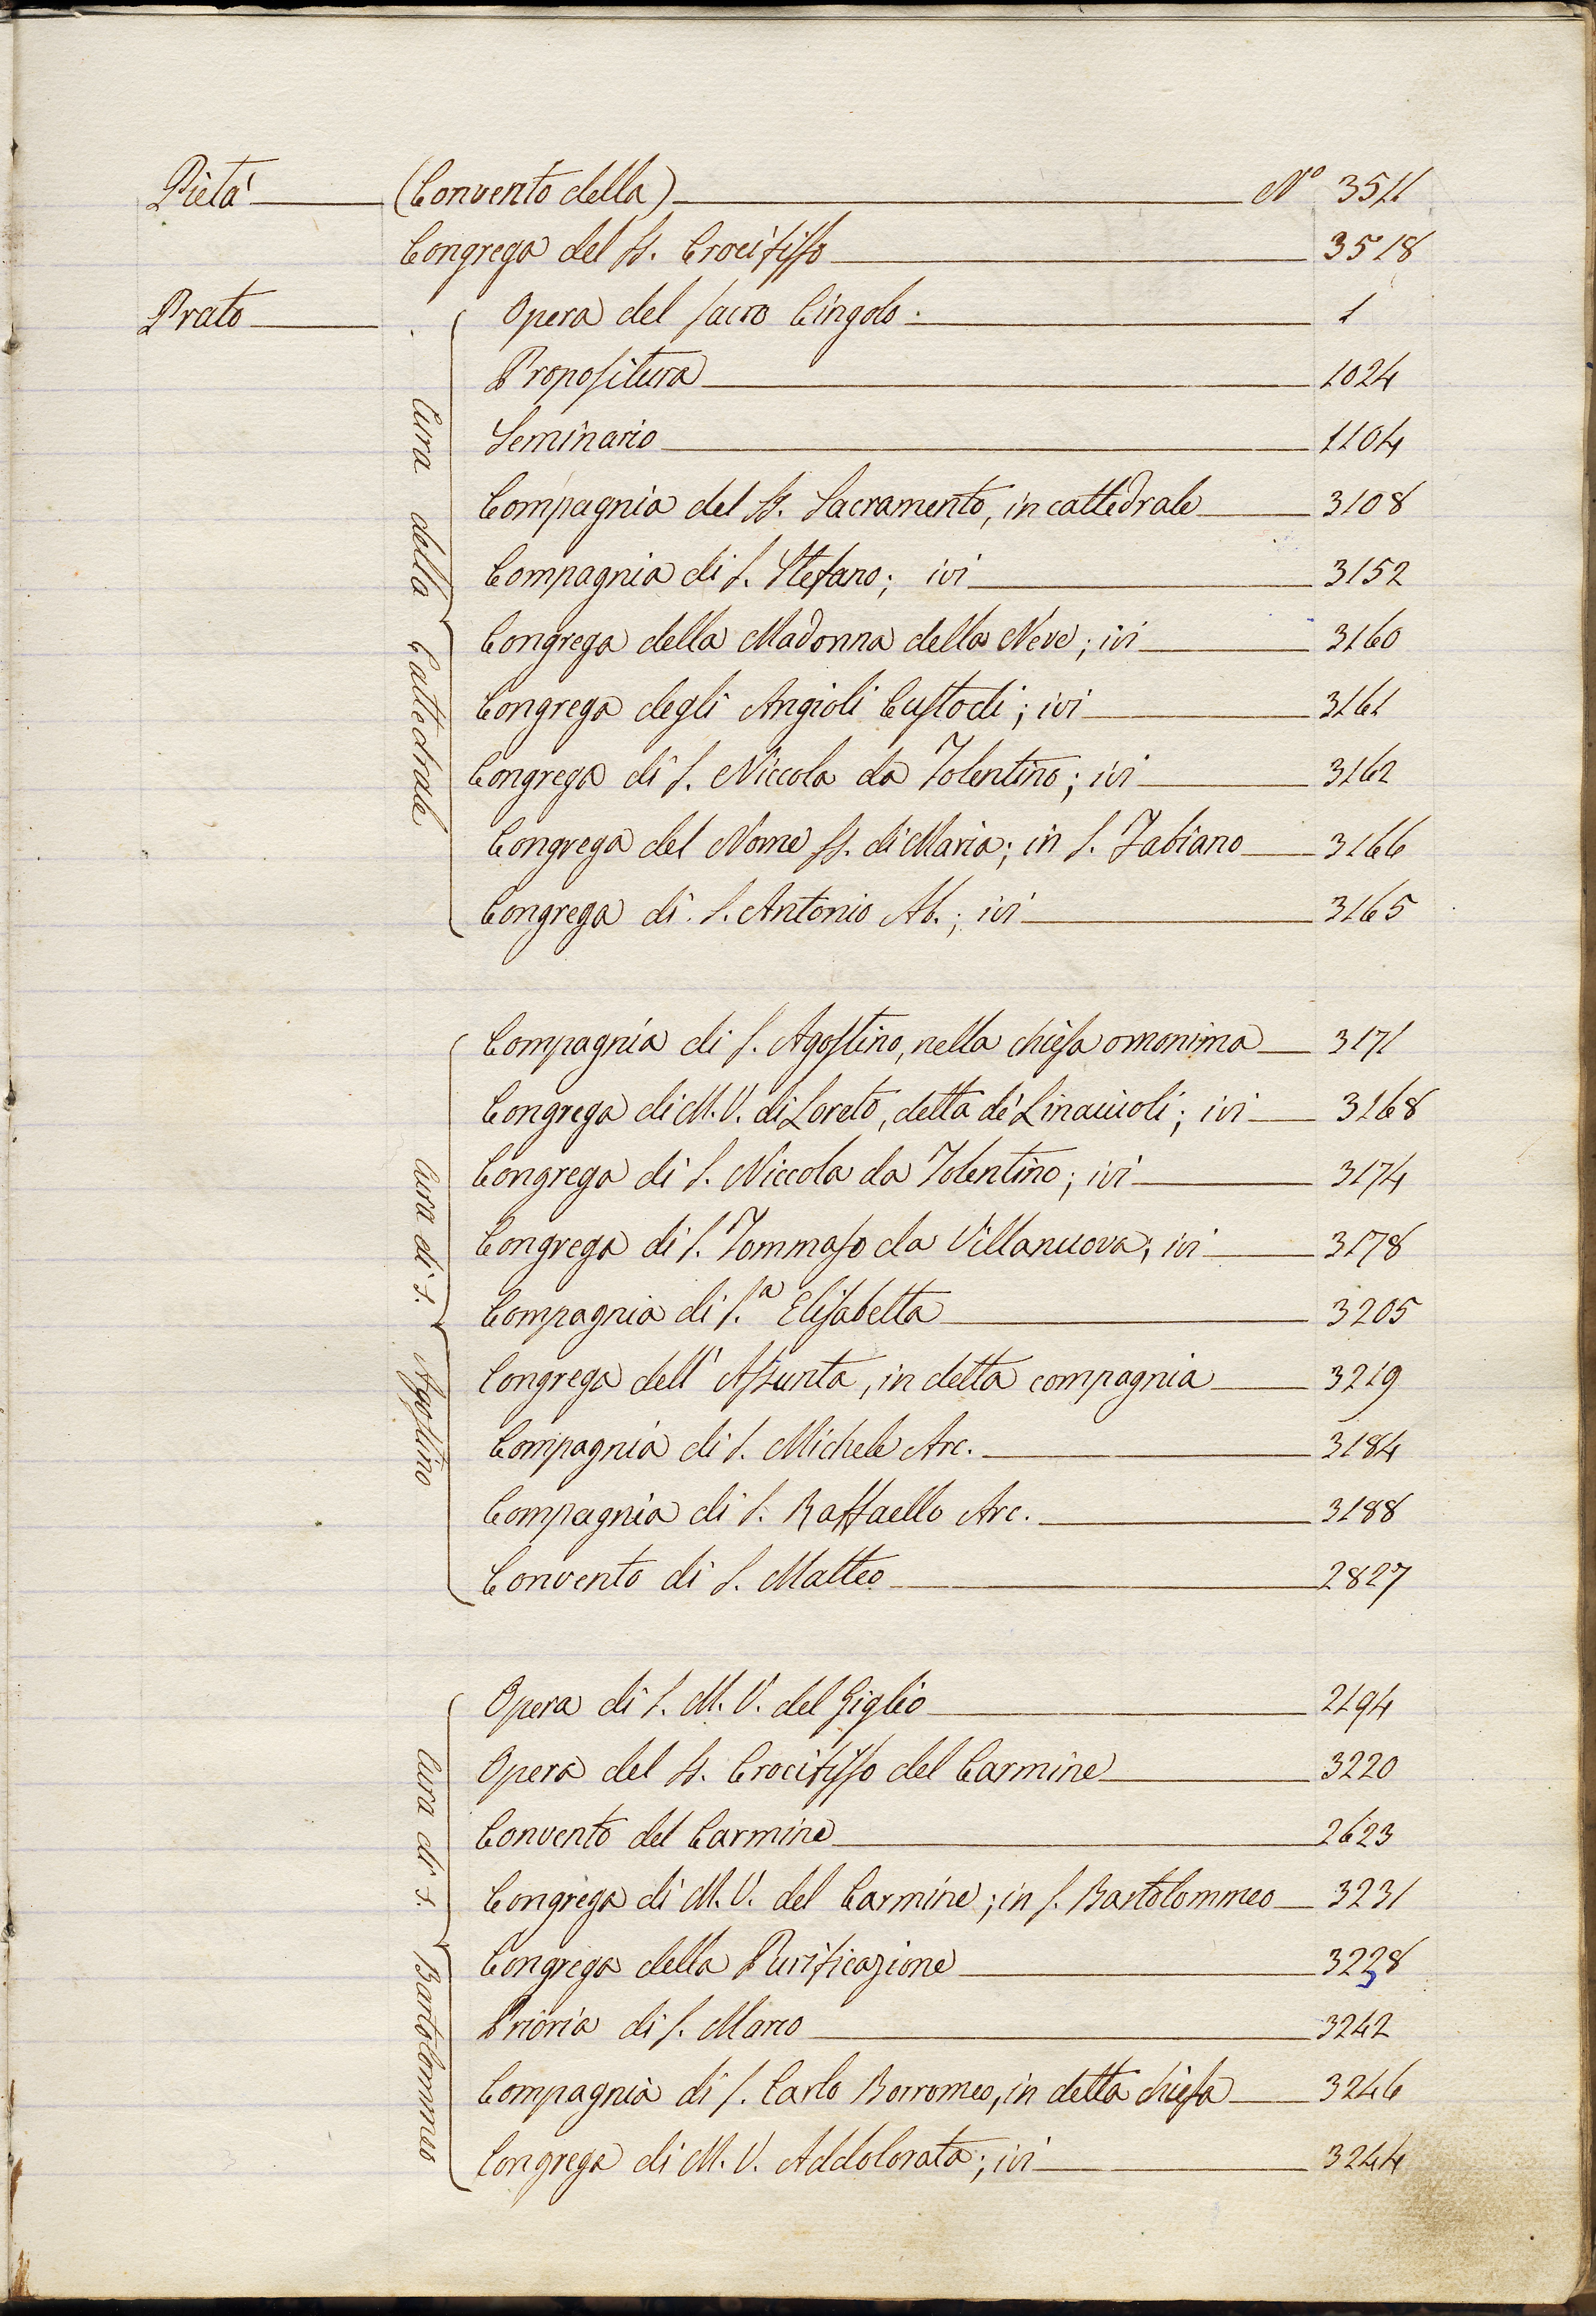 Pietà (Convento della) Nº 3511
Congrega del SS. Crocifisso 3518
Prato Opera del sacro Cingolo. 1
Cura della Cattedrale
Propositura 1024
Seminario 1104
Compagnia del SS. Sacramento, in cattedrale 3108
Compagnia di S. Stefano; ivi 3152
Congrega della Madonna della Neve; ivi 3160
Congrega degli Angioli Custodi; ivi 3161
Congrega di S. Niccola da Tolentino; ivi 3162
Congrega del Nome SS. di Maria; in S. Fabiano 3166
Congrega di S. Antonio Ab.; ivi 3165
Cura di s. Agostino
Compagnia di S. Agostino, nella chiesa omonima 3171
Congrega di M. V. di Loreto, detta de' Linaiuoli; ivi 3168
Congrega di S. Niccola da Tolentino; ivi 3174
Congrega di S. Tommaso da Villanuova; ivi 3178
Compagnia di S.ª Elisabetta 3205
Congrega dell' Assunta, in detta compagnia 3219
Compagnia di S. Michele Arc. 3184
Compagnia di S. Raffaello Arc. 3188
Convento di S. Matteo 2827
Cura di s. Bartolommeo
Opera di S. M. V. del Giglio 2194
Opera del SS. Crocifisso del Carmine 3220
Convento del Carmine 2623
Congrega di M. V. del Carmine; in S. Bartolommeo 3231
Congrega della Purificazione 3228
3
Prioria di S. Marco 3242
Compagnia di S. Carlo Borromeo, in detta chiesa 3246
Congrega di M. V. Addolorata; ivi 3244